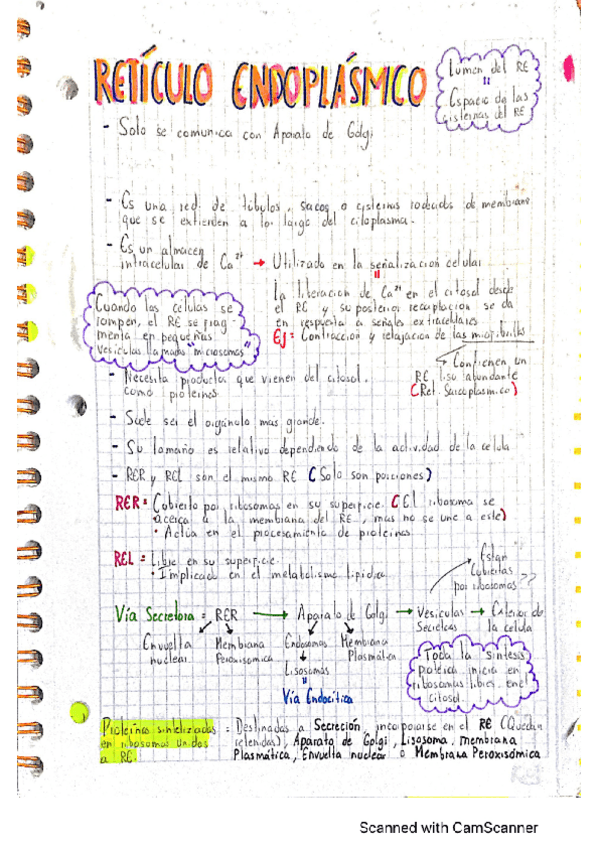 RETÍCULO ENDOPLÁSMCO
Lumen del RE
=
Espacio de las
cisternas del RE
- Solo se comunica con Aparato de Golgi
- Es una red de túbulos, sacos o cisternas rodeados de membrana
que se extienden a lo largo del citoplasma.
- Es un almacen
intracelular de Ca²⁺ → Utilizado en la señalización celular
La liberación de Ca²⁺ en el citosol desde
el RE y su posterior recaptación se da
en respuesta a señales extracelulares
Ej: Contracción y relajación de las miofibrillas
→ Contienen un
REL liso abundante
(Ret. Sarcoplasmico)
Cuando las celulas se
rompen, el RE se frag
menta en pequeñas
vesiculas llamado "microsomas"
- Necesita productos que vienen del citosol.
como proteínas
- Suele ser el organulo mas grande.
- Su tamaño es relativo dependiendo de la actividad de la celula
- RER y REL son el mismo RE (Solo son porciones)
RER = Cubierto por ribosomas en su superficie. (El ribosoma se
acerca a la membrana del RE, mas no se une a este)
• Actúa en el procesamiento de proteínas.
REL = Libre en su superficie.
• Implicado en el metabolismo lipídico
Estan
cubiertas
por ribosomas??
Vía Secretora = RER → Aparato de Golgi → Vesículas → Exterior de
Secretoras la celula
Envuelta Membrana Endosomas Membrana
nuclear Peroxisomica Plasmática
Lisosomas
=
Vía Endocítica
Toda la síntesis
proteica inicia en
ribosomas libres en el
citosol
Proteínas sintetizadas = Destinadas a Secreción, incorporarse en el RE (Quedan
en ribosomas unidos retenidas), Aparato de Golgi, Lisosoma, membrana
a RE. Plasmática, Envuelta nuclear o Membrana Peroxisómica
Scanned with CamScanner